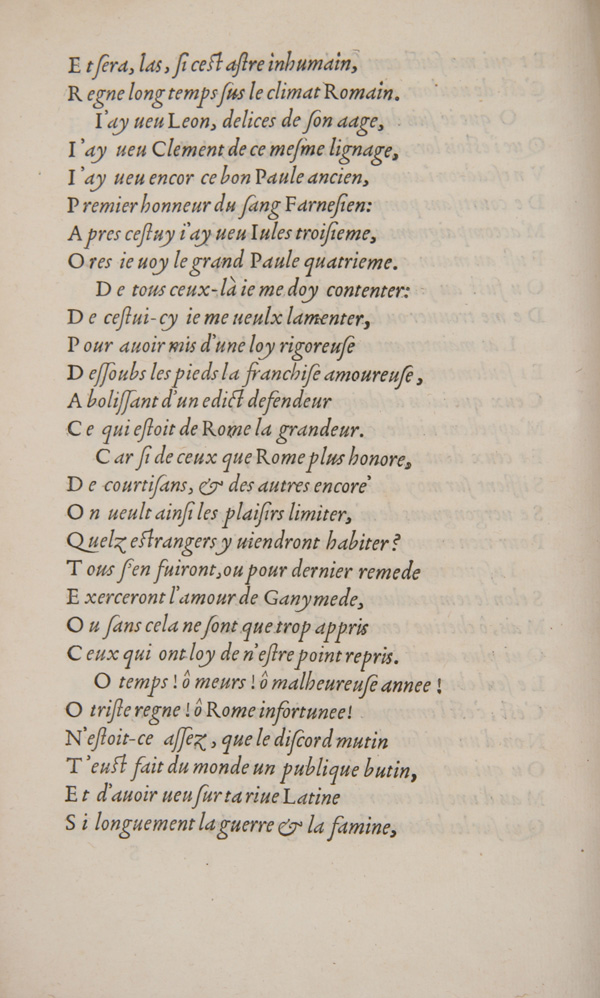 Et sera, las, si cest astre inhumain,
Regne long temps sus le climat Romain.
I'ay ueu Leon, delices de son aage,
I'ay ueu Clement de ce mesme lignage,
I'ay ueu encor ce bon Paule ancien,
Premier honneur du sang Farnesien:
Apres cestuy i'ay ueu Iules troisieme,
Ores ie uoy le grand Paule quatrieme.
De tous ceux-là ie me doy contenter:
De cestui-cy ie me ueulx lamenter,
Pour auoir mis d'une loy rigoreuse
Dessoubs les pieds la franchise amoureuse,
Abolissant d'un edict defendeur
Ce qui estoit de Rome la grandeur.
Car si de ceux que Rome plus honore,
De courtisans, & des autres encore
On ueult ainsi les plaisirs limiter,
Quelz estrangers y uiendront habiter?
Tous s'en fuiront, ou pour dernier remede
Exerceront l'amour de Ganymede,
Ou sans cela ne sont que trop appris
Ceux qui ont loy de n'estre point repris.
O temps! ô meurs! ô malheureuse annee!
O triste regne! ô Rome infortunee!
N'estoit-ce assez, que le discord mutin
T'eust fait du monde un publique butin,
Et d'auoir ueu sur ta riue Latine
Si longuement la guerre & la famine,